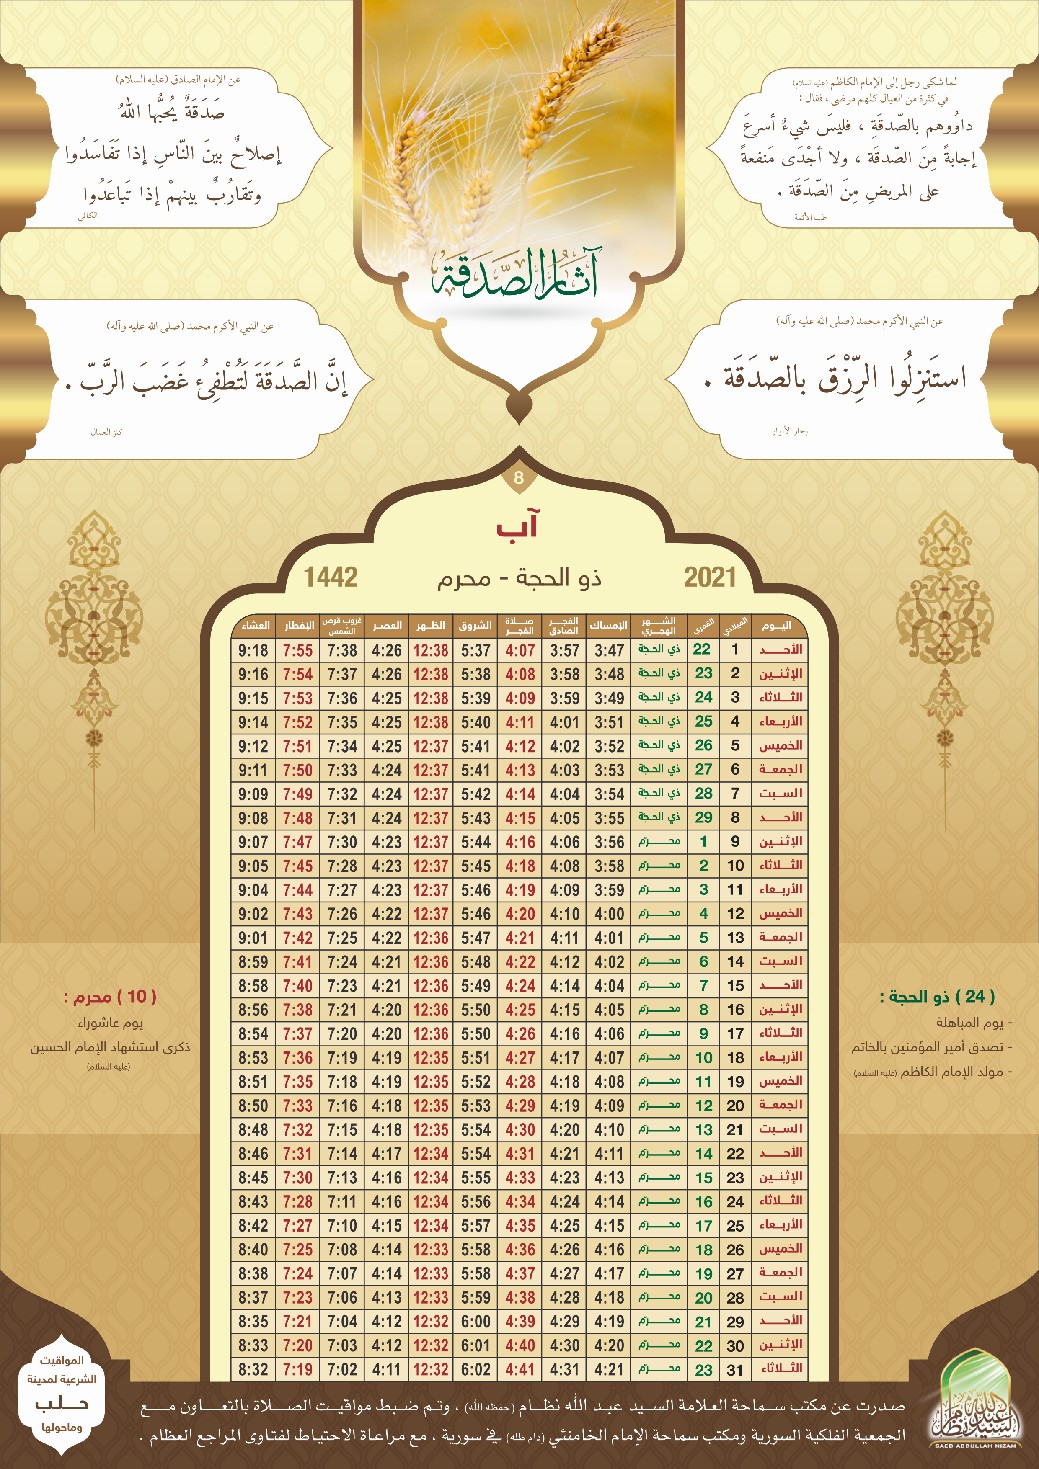 لما شكى رجل إلى الإمام الكاظم (عليه السلام)
في كثرة من العيال كلهم مرضى ، فقال :
داوُوهم بالصّدقَةِ ، فليسَ شيءٌ أسرعَ
إجابةً مِنَ الصّدقَة ، ولا أجْدَى مَنفعةً
على المريضِ مِنَ الصّدَقَة .
طب الأئمة
عن الإمام الصادق (عليه السلام)
صَدَقَةٌ يُحبُّها اللهُ
إصلاحٌ بينَ النّاسِ إذا تَفَاسَدُوا
وتَقَارُبٌ بينهمْ إذا تَباعَدُوا
الكافي
آثار الصَّدقة
عن النبي الأكرم محمد (صلى الله عليه وآله)
استَنزِلُوا الرِّزْقَ بالصّدَقَة .
بحار الأنوار
عن النبي الأكرم محمد (صلى الله عليه وآله)
إنَّ الصَّدَقَةَ لَتُطْفِئُ غَضَبَ الرَّبّ .
كنز العمال
8
آب
2021 ذو الحجة - محرم 1442
اليوم الميلادي القمري الشهر الهجري الإمساك الفجر الصادق صلاة الفجر الشروق الظهر العصر غروب قرص الشمس الإفطار العشاء
الأحد 1 22 ذي الحجة 3:47 3:57 4:07 5:37 12:38 4:26 7:38 7:55 9:18
الإثنين 2 23 ذي الحجة 3:48 3:58 4:08 5:38 12:38 4:26 7:37 7:54 9:16
الثلاثاء 3 24 ذي الحجة 3:49 3:59 4:09 5:39 12:38 4:25 7:36 7:53 9:15
الأربعاء 4 25 ذي الحجة 3:51 4:01 4:11 5:40 12:38 4:25 7:35 7:52 9:14
الخميس 5 26 ذي الحجة 3:52 4:02 4:12 5:41 12:37 4:25 7:34 7:51 9:12
الجمعة 6 27 ذي الحجة 3:53 4:03 4:13 5:41 12:37 4:24 7:33 7:50 9:11
السبت 7 28 ذي الحجة 3:54 4:04 4:14 5:42 12:37 4:24 7:32 7:49 9:09
الأحد 8 29 ذي الحجة 3:55 4:05 4:15 5:43 12:37 4:24 7:31 7:48 9:08
الإثنين 9 1 محرم 3:56 4:06 4:16 5:44 12:37 4:23 7:30 7:47 9:07
الثلاثاء 10 2 محرم 3:58 4:08 4:18 5:45 12:37 4:23 7:28 7:45 9:05
الأربعاء 11 3 محرم 3:59 4:09 4:19 5:46 12:37 4:23 7:27 7:44 9:04
الخميس 12 4 محرم 4:00 4:10 4:20 5:46 12:37 4:22 7:26 7:43 9:02
الجمعة 13 5 محرم 4:01 4:11 4:21 5:47 12:36 4:22 7:25 7:42 9:01
السبت 14 6 محرم 4:02 4:12 4:22 5:48 12:36 4:21 7:24 7:41 8:59
الأحد 15 7 محرم 4:04 4:14 4:24 5:49 12:36 4:21 7:23 7:40 8:58
الإثنين 16 8 محرم 4:05 4:15 4:25 5:50 12:36 4:20 7:21 7:38 8:56
الثلاثاء 17 9 محرم 4:06 4:16 4:26 5:50 12:36 4:20 7:20 7:37 8:54
الأربعاء 18 10 محرم 4:07 4:17 4:27 5:51 12:35 4:19 7:19 7:36 8:53
الخميس 19 11 محرم 4:08 4:18 4:28 5:52 12:35 4:19 7:18 7:35 8:51
الجمعة 20 12 محرم 4:09 4:19 4:29 5:53 12:35 4:18 7:16 7:33 8:50
السبت 21 13 محرم 4:10 4:20 4:30 5:54 12:35 4:18 7:15 7:32 8:48
الأحد 22 14 محرم 4:11 4:21 4:31 5:54 12:34 4:17 7:14 7:31 8:46
الإثنين 23 15 محرم 4:13 4:23 4:33 5:55 12:34 4:16 7:13 7:30 8:45
الثلاثاء 24 16 محرم 4:14 4:24 4:34 5:56 12:34 4:16 7:11 7:28 8:43
الأربعاء 25 17 محرم 4:15 4:25 4:35 5:57 12:34 4:15 7:10 7:27 8:42
الخميس 26 18 محرم 4:16 4:26 4:36 5:58 12:33 4:14 7:08 7:25 8:40
الجمعة 27 19 محرم 4:17 4:27 4:37 5:58 12:33 4:14 7:07 7:24 8:38
السبت 28 20 محرم 4:18 4:28 4:38 5:59 12:33 4:13 7:06 7:23 8:37
الأحد 29 21 محرم 4:19 4:29 4:39 6:00 12:32 4:12 7:04 7:21 8:35
الإثنين 30 22 محرم 4:20 4:30 4:40 6:01 12:32 4:12 7:03 7:20 8:33
الثلاثاء 31 23 محرم 4:21 4:31 4:41 6:02 12:32 4:11 7:02 7:19 8:32
( 24 ) ذو الحجة :
- يوم المباهلة
- تصدق أمير المؤمنين بالخاتم
- مولد الإمام الكاظم (عليه السلام)
( 10 ) محرم :
يوم عاشوراء
ذكرى استشهاد الإمام الحسين
(عليه السلام)
صدرت عن مكتب سماحة العلامة السيد عبد الله نظام (حفظه الله) ، وتم ضبط مواقيت الصلاة بالتعاون مع
الجمعية الفلكية السورية ومكتب سماحة الإمام الخامنئي (دام ظله) في سورية ، مع مراعاة الاحتياط لفتاوى المراجع العظام .
المواقيت
الشرعية لمدينة
حلب
وماحولها
السيد عبد الله نظام
SAED ABDULLAH NIZAM